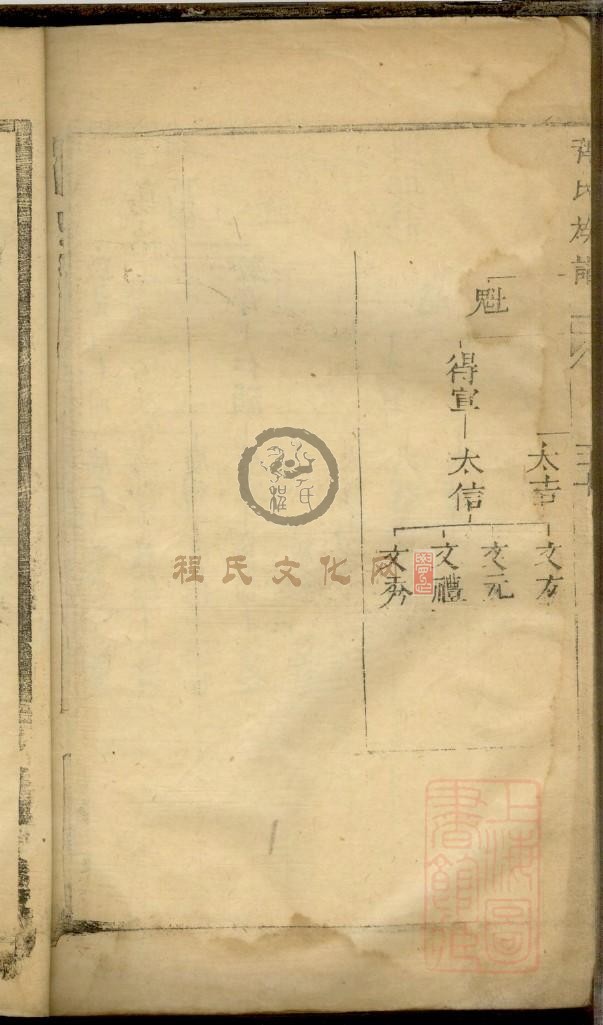 氏族譜
三十
太吉
魁
得軍
太信
文友
文元
文禮
程氏
程氏文化网
上海圖
書館藏